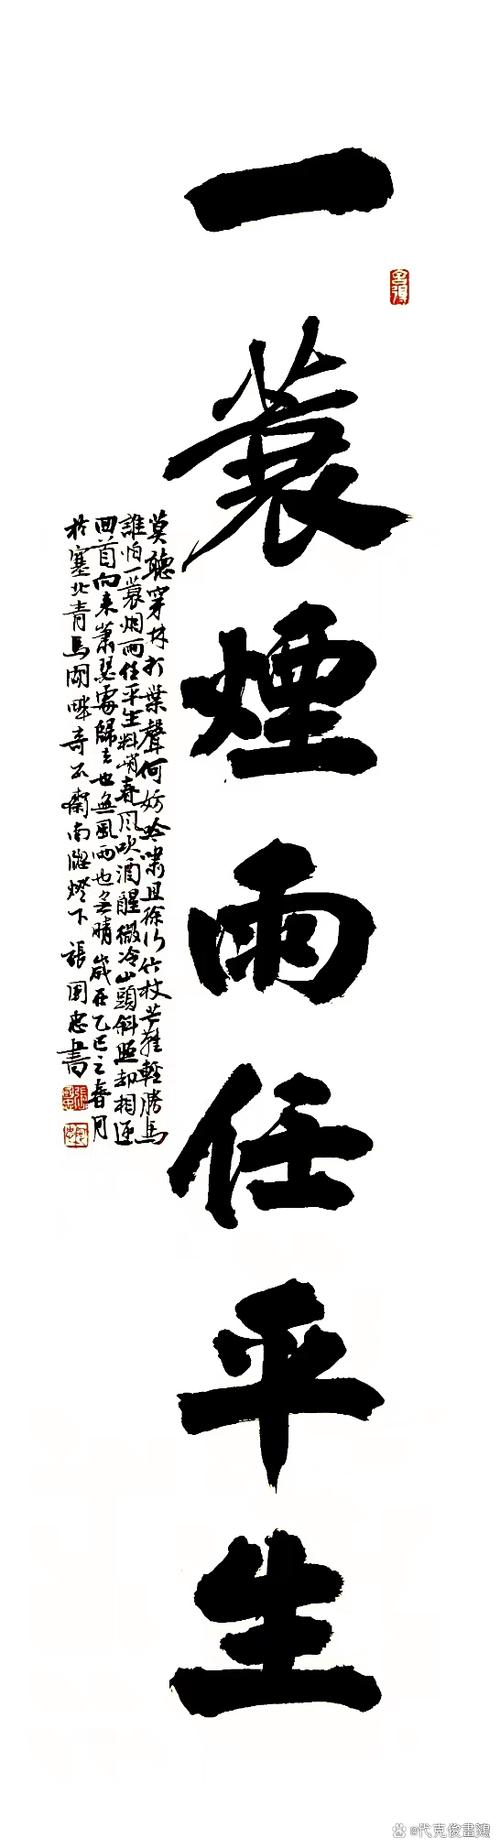 一蓑煙雨任平生
莫聽穿林打葉聲何妨吟嘯且徐行竹杖芒鞋輕勝馬
誰怕一蓑烟雨任平生料峭春风吹酒醒微冷山頭斜照却相迎
回首向来蕭瑟處歸去也無風雨也无晴歲在乙巳之春月
於塞北青馬湖畔奇石齋南窗燈下張国忠書
@代克俊畫鴻